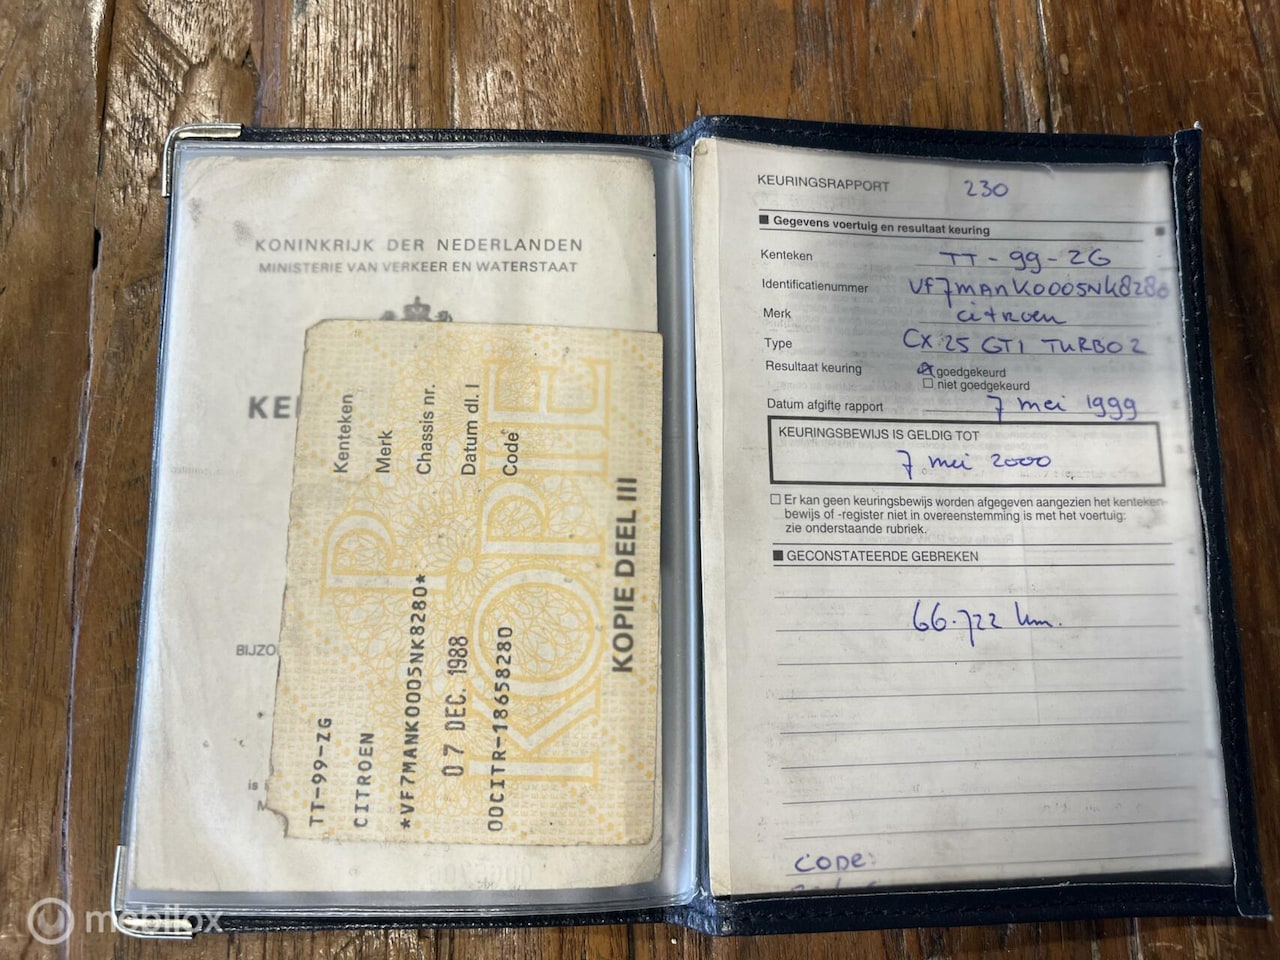 KONINKRIJK DER NEDERLANDEN
MINISTERIE VAN VERKEER EN WATERSTAAT
KE
BIJZO
is
M
Kenteken TT-99-ZG
Merk CITROEN
Chassis nr. *VF7MANK0005NK8280*
Datum dl. I 07 DEC. 1988
Code 00CITR-18658280
KOPIE DEEL III
KOPIE
KEURINGSRAPPORT 230
Gegevens voertuig en resultaat keuring
Kenteken TT-99-ZG
Identificatienummer VF7MANK0005NK8280
Merk citroen
Type CX 25 GTI TURBO 2
Resultaat keuring goedgekeurd
niet goedgekeurd
Datum afgifte rapport 7 mei 1999
KEURINGSBEWIJS IS GELDIG TOT
7 mei 2000
Er kan geen keuringsbewijs worden afgegeven aangezien het kenteken-
bewijs of -register niet in overeenstemming is met het voertuig:
zie onderstaande rubriek.
GECONSTATEERDE GEBREKEN
66.722 km.
CODE:
mobilox